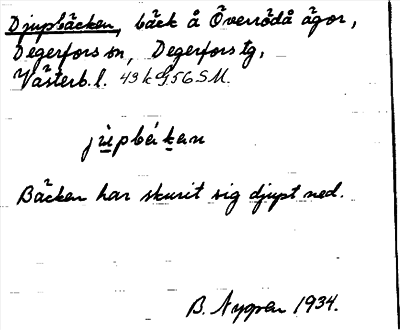 Djupbäcken, bäck å Överrödå ägor,
Degerfors sn, Degerfors tg,
Västerb. l. 43k G. 56 S.M.
jupbäkan
Bäcken har skurit sig djupt ned.
B. Nygren 1934.